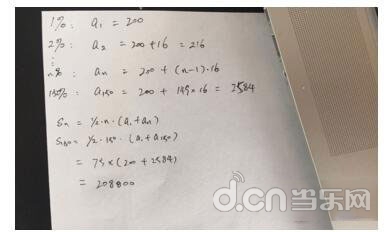 1%: a₁ = 200
2%: a₂ = 200+16 = 216
⋮
n%: aₙ = 200 + (n-1)·16
150%: a₁₅₀ = 200 + 149×16 = 2584
Sₙ = ½·n·(a₁+aₙ)
S₁₅₀ = ½·150·(a₁+a₁₅₀)
= 75×(200+2584)
= 208800
d.cn当乐网